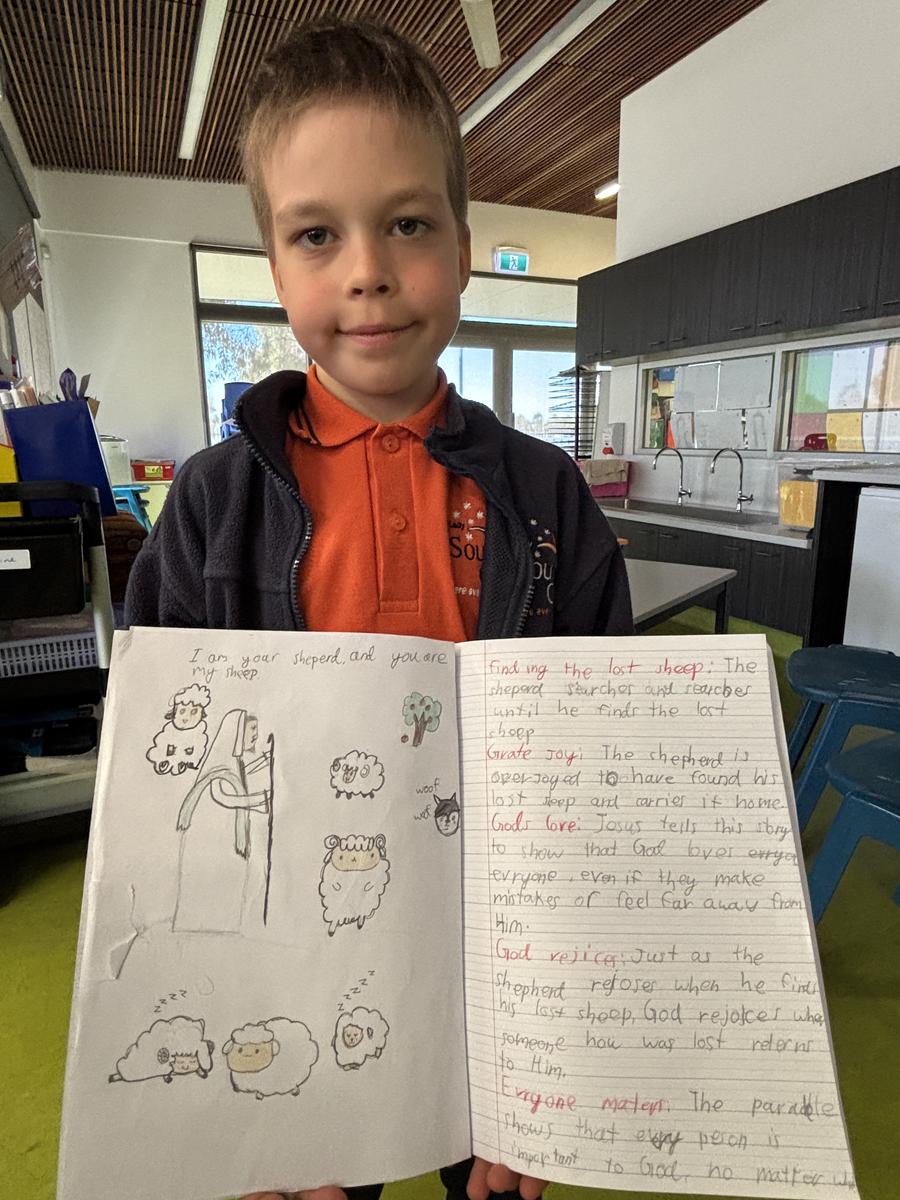 I am your sheperd, and you are
my sheep.
woof
wof
zzzz
zzzz
finding the lost sheep: The
sheperd searches and searches
until he finds the lost
sheep
Grate joy: The shepherd is
overjoyed to have found his
lost sleep and carries it home
Gods love: Jesus tells this story
to show that God loves errya
evryone, even if they make
mistakes or feel far away from
Him.
God rejices: Just as the
shepherd rejoses when he finds
his lost sheep, God rejoices when
someone how was lost reterns
to Him.
Evryone maters: The parable
shows that evry person is
important to God, no matter
Sou
ou
ere eve